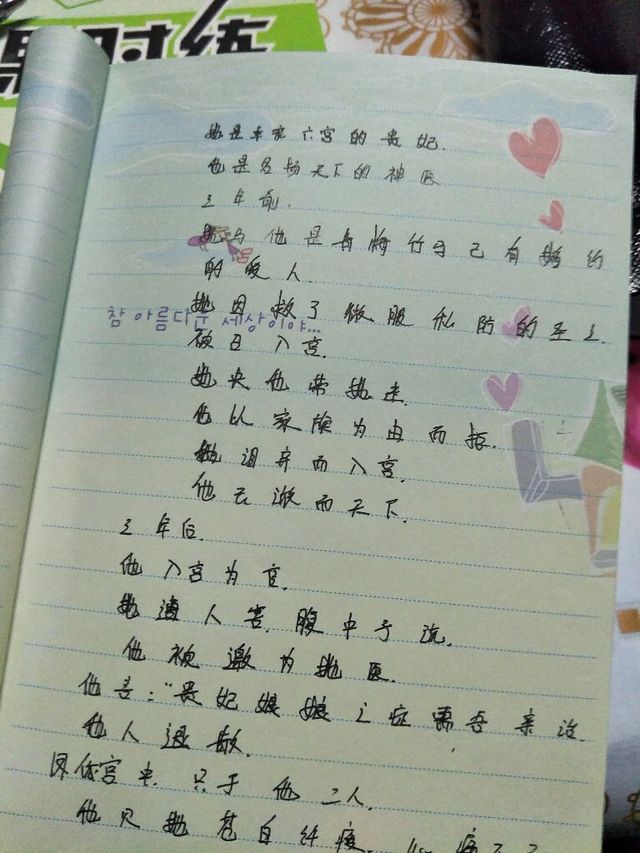 课时练
她是车家六宫的贵妃.
他是名扬天下的神医
三年前.
她与他是青梅竹马已有婚约
的爱人.
참 아름다운 세상이야...
她因救了微服私防的圣上.
被召入宫.
她央他带她走.
他以家族为由而拒.
她泪弃而入宫.
他云游而天下.
三年后.
他入宫为官.
她遭人害.腹中子流.
他被邀为她医.
他言:“贵妃娘娘之症需吾亲治.
他人退散.
宫中.只于他二人.
他见她苍白纤瘦.